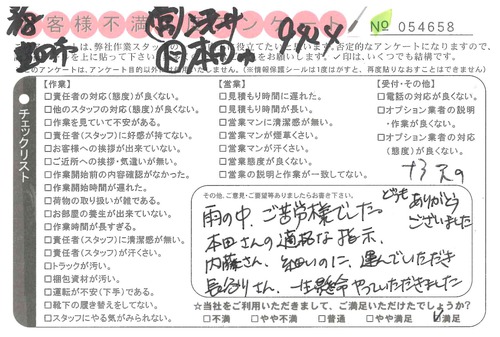 お客様不満足アンケート
№ 054658
チェックリスト
【作業】
□責任者の対応(態度)が良くない。
□他のスタッフの対応(態度)が良くない。
□作業を見ていて不安がある。
□責任者(スタッフ)に好感が持てない。
□お客様への挨拶が出来ていない。
□ご近所への挨拶・気遣いが無い。
□作業開始前の内容確認がなかった。
□作業開始時間が遅れた。
□荷物の取り扱いが雑である。
□お部屋の養生が出来ていない。
□作業時間が長すぎる。
□責任者(スタッフ)に清潔感が無い。
□責任者(スタッフ)が汗くさい。
□トラックが汚い。
□梱包資材が汚い。
□運転が不安(下手)である。
□靴下の履き替えをしてない。
□スタッフにやる気がみられない。
【営業】
□見積もり時間に遅れた。
□見積もり時間が長い。
□営業マンに清潔感が無い。
□営業マンが煙草くさい。
□営業マンが汗くさい。
□営業態度が良くない。
□営業の説明と作業が一致してない。
【受付・その他】
□電話の対応が良くない。
□オプション業者の説明・作業が良くない。
□オプション業者の対応(態度)が良くない。
その他、ご意見・ご要望等ありましたらお書き下さい。
雨の中、ご苦労様でした。
どうも ありがとう ございました
本田さんの適格な指示、
内藤さん、細いのに、運んでいただき
長谷川さん、一生懸命やっていただきました
☆当社をご利用いただきまして、ご満足いただけたでしょうか?
□不満 □やや不満 □普通 □やや満足 ☑満足